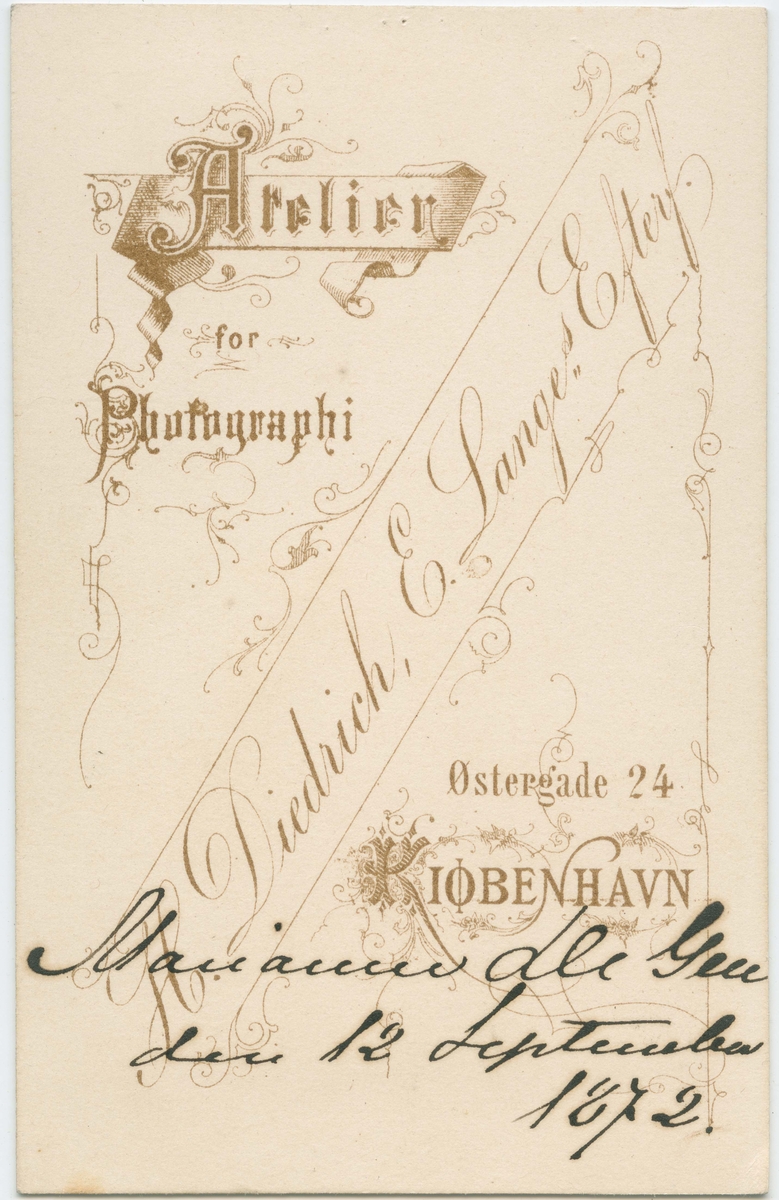 Atelier
for
Photographi
H. Diedrich, E. Lange's Efterf.
Østergade 24
KIØBENHAVN
Marianne de
den 12 September
1872.